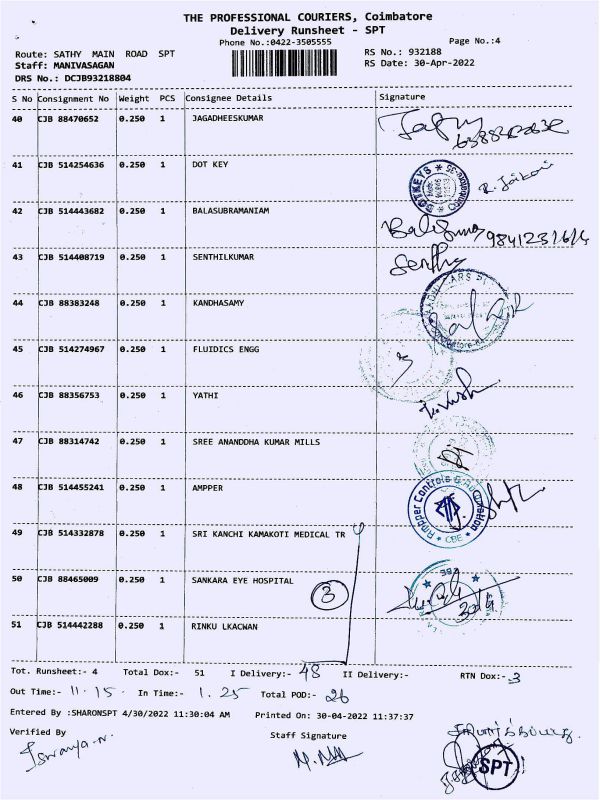 THE PROFESSIONAL COURIERS, Coimbatore
Delivery Runsheet - SPT
Phone No.:0422-3505555
Page No.:4
Route: SATHY MAIN ROAD SPT
RS No.: 932188
Staff: MANIVASAGAN
RS Date: 30-Apr-2022
DRS No.: DCJB93218804
S No Consignment No Weight PCS Consignee Details Signature
40 CJB 88470652 0.250 1 JAGADHEESKUMAR
41 CJB 514254636 0.250 1 DOT KEY
42 CJB 514443682 0.250 1 BALASUBRAMANIAM
43 CJB 514408719 0.250 1 SENTHILKUMAR
44 CJB 88383248 0.250 1 KANDHASAMY
45 CJB 514274967 0.250 1 FLUIDICS ENGG
46 CJB 88356753 0.250 1 YATHI
47 CJB 88314742 0.250 1 SREE ANANDDHA KUMAR MILLS
48 CJB 514455241 0.250 1 AMPPER
Ampper Controls & Automation
CBE
49 CJB 514332878 0.250 1 SRI KANCHI KAMAKOTI MEDICAL TR
50 CJB 88465009 0.250 1 SANKARA EYE HOSPITAL
3
51 CJB 514442288 0.250 1 RINKU LKACWAN
Tot. Runsheet:- 4 Total Dox:- 51 I Delivery:- 48 II Delivery:- RTN Dox:- 3
Out Time:- 11.15 In Time:- 1.25 Total POD:- 26
Entered By :SHARONSPT 4/30/2022 11:30:04 AM Printed On: 30-04-2022 11:37:37
Verified By
Staff Signature
SPT